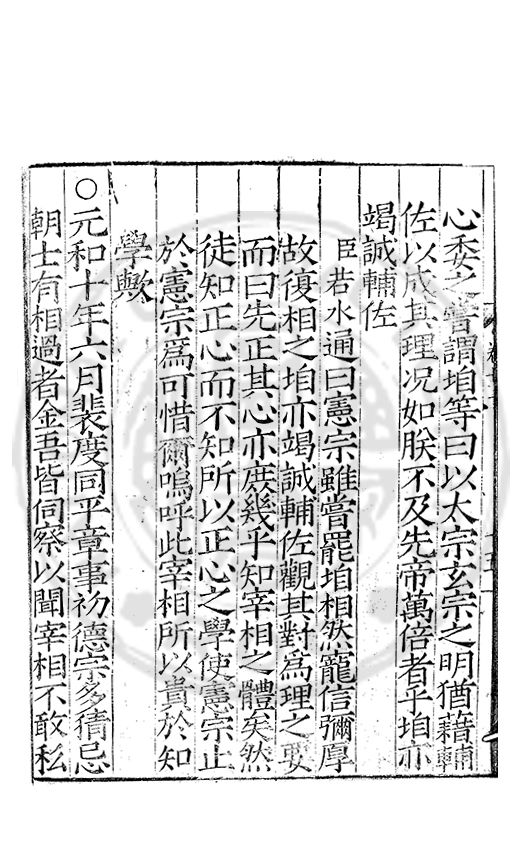 心委之嘗謂垍等曰以太宗玄宗之明猶藉輔
佐以成其理况如朕不及先帝萬倍者乎垍亦
竭誠輔佐
臣若水通曰憲宗雖嘗罷垍相然寵信彌厚
故復相之垍亦竭誠輔佐觀其對爲理之要
而曰先正其心亦庶幾乎知宰相之體矣然
徒知正心而不知所以正心之學使憲宗止
於憲宗爲可惜爾嗚呼此宰相所以貴於知
學歟
○元和十年六月裴度同平章事初德宗多猜忌
朝士有相過者金吾皆伺察以聞宰相不敢私